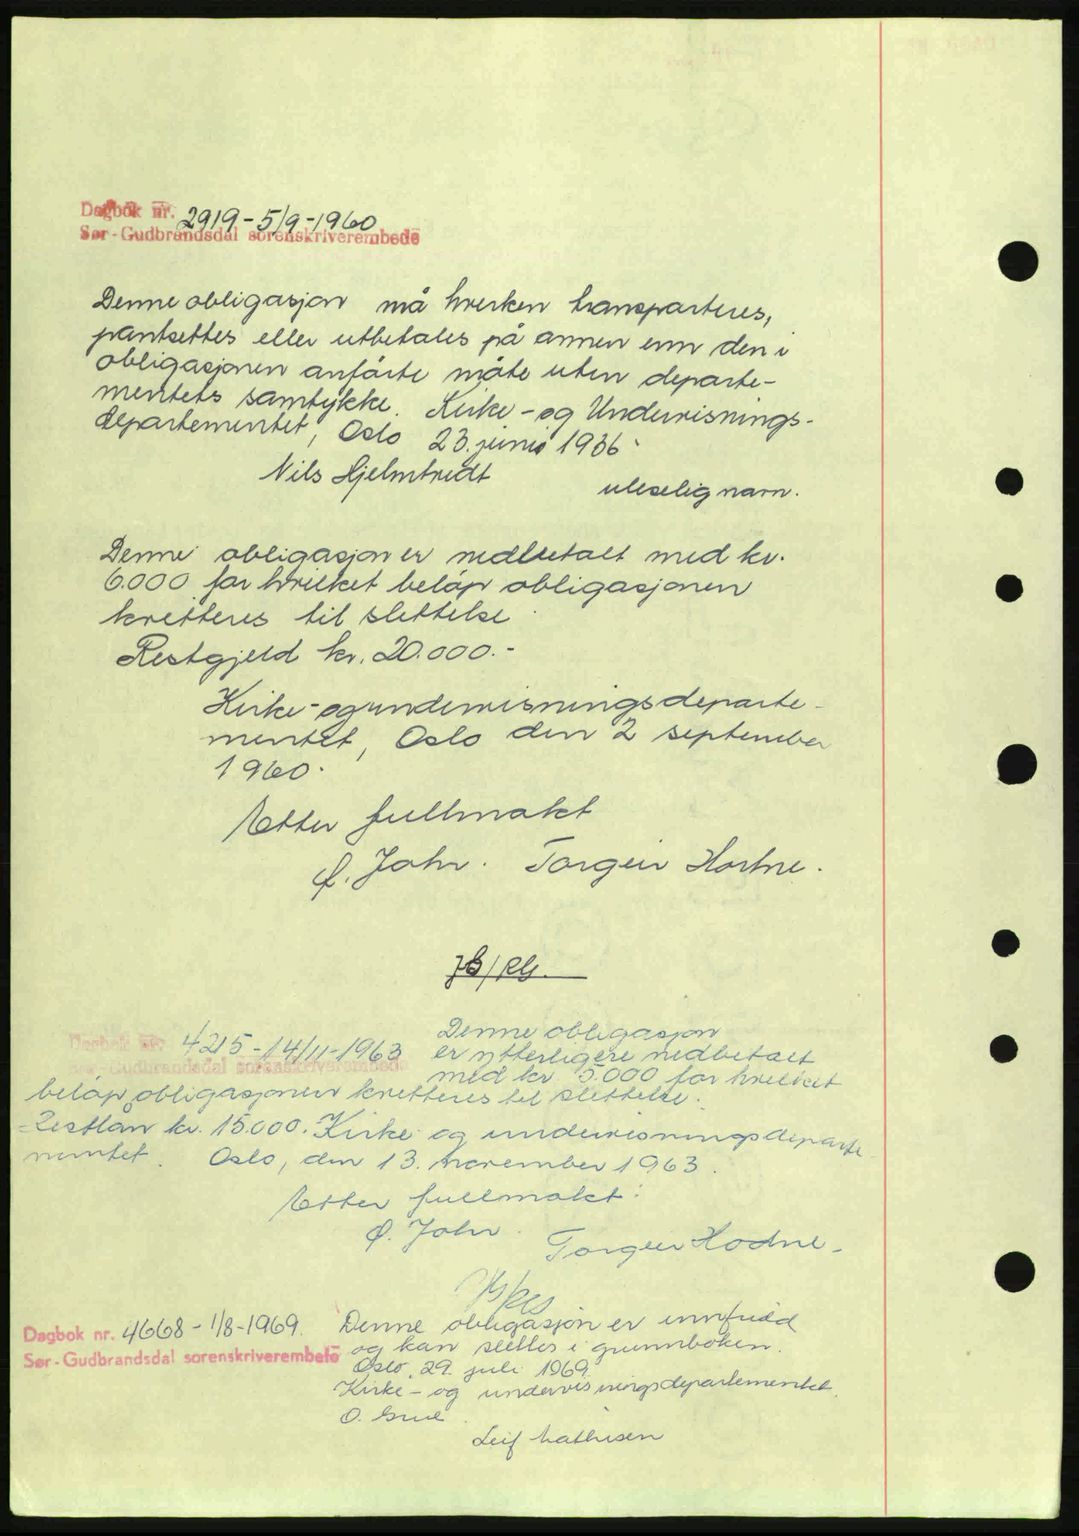 Dagbok nr. 2919 - 5/9 - 1960
Sør-Gudbrandsdal sorenskriverembede
Denne obligasjon må hverken transporteres,
pantsettes eller utbetales på annen enn den i
obligasjonen anførte måte uten departe-
mentets samtykke. Kirke- og Undervisnings-
departementet, Oslo 23. juni 1936.
Nils Hjelmtveit uleselig navn.
Denne obligasjon er nedbetalt med kr.
6.000 for hvilket beløp obligasjonen
kvitteres til slettelse
Restgjeld kr. 20.000.-
Kirke- og undervisningsdeparte-
mentet, Oslo den 2 september
1960.
Etter fullmakt
Ø. Johr. Torgeir Hodne.
JG/RG.
Dagbok nr. 4215 - 14/11 - 1963 Denne obligasjon
Sør-Gudbrandsdal sorenskriverembede er ytterligere nedbetalt
med kr 5.000 for hvilket
beløp obligasjonen kvitteres til slettelse.
Restlån kr. 15.000. Kirke og undervisningsdeparte-
mentet. Oslo, den 13. november 1963.
Etter fullmakt:
Ø. Johr. Torgeir Hodne.
Dagbok nr. 4668 - 1/8 - 1969. Denne obligasjon er innfridd
Sør-Gudbrandsdal sorenskriverembete og kan slettes i grunnboken.
Oslo, 29. juli 1969
Kirke- og undervisningsdepartementet.
O.
Leif Mathisen